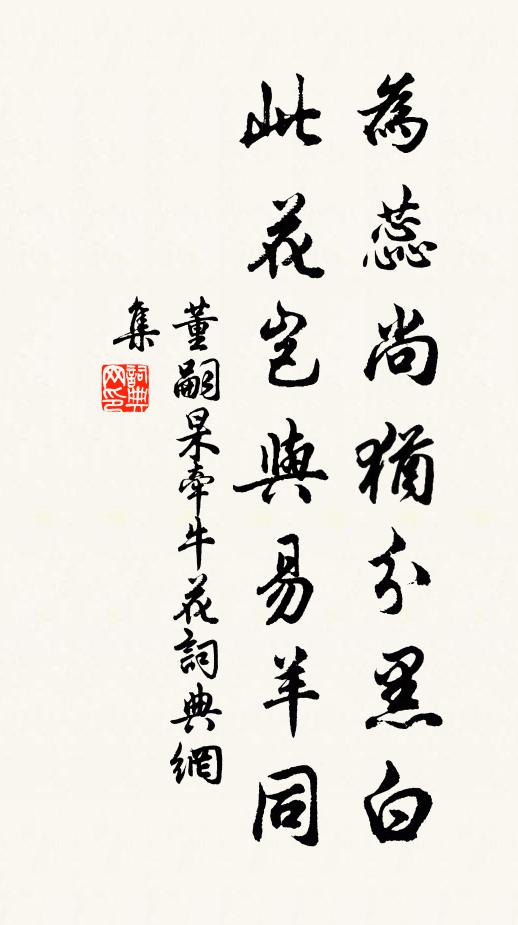 為蕊尚猶分黑白
此花豈與易羊同
董嗣杲牽牛花詞典網
集
詞典
网印